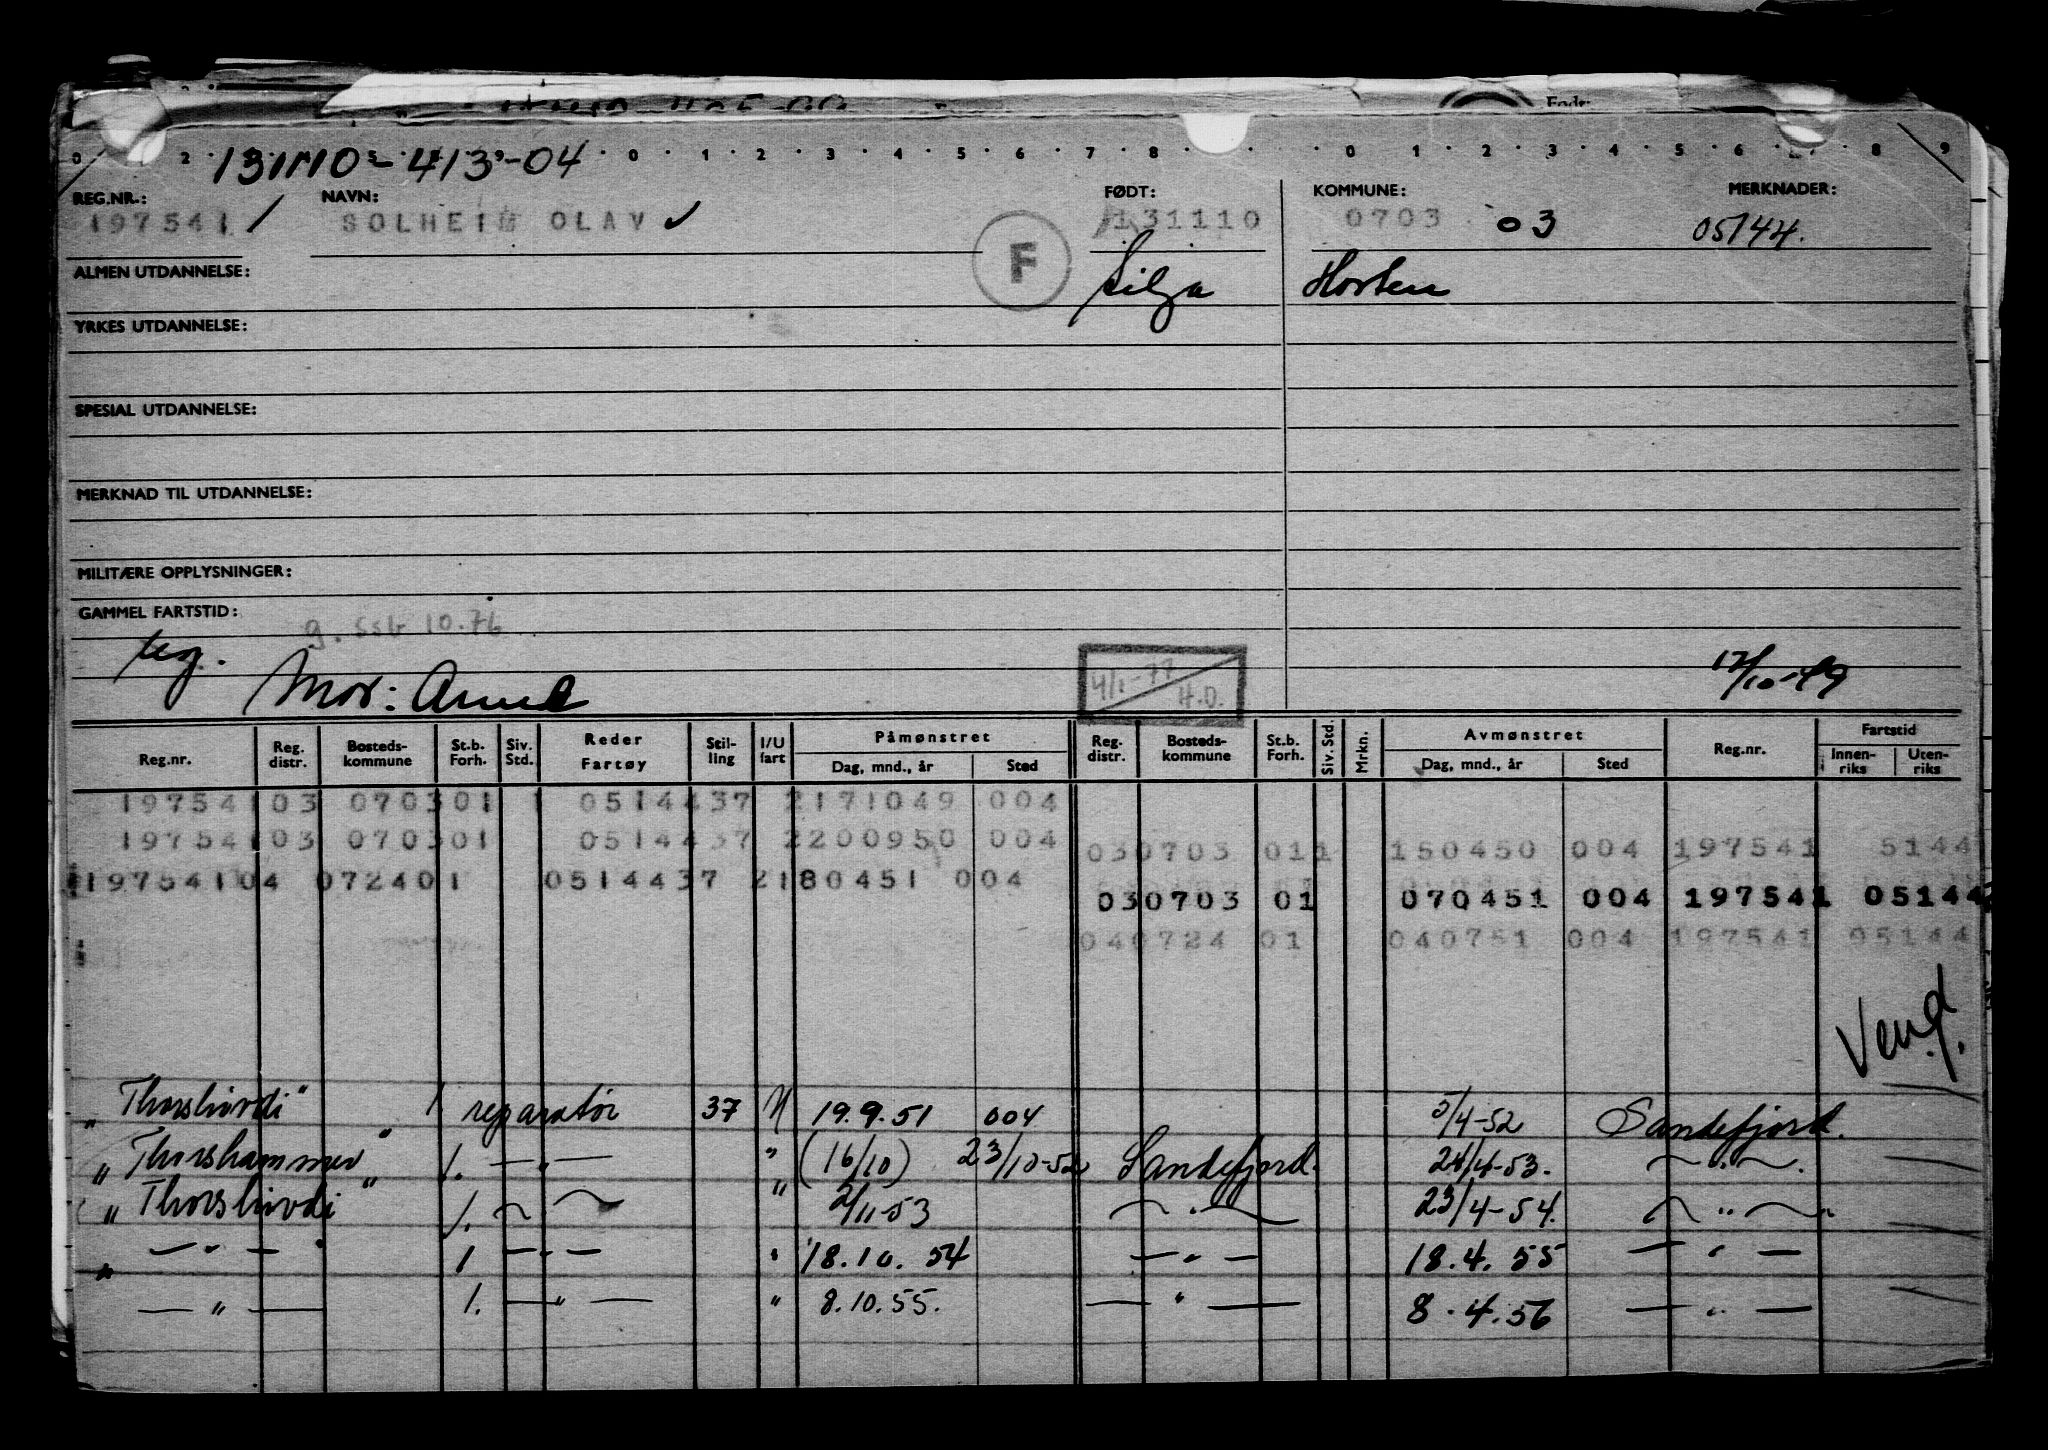 131110-413-04
REG.NR.: NAVN: FØDT: KOMMUNE: MERKNADER:
197541 / SOLHEIM OLAV ✓ 131110 0703 03 05144.
F
ALMEN UTDANNELSE: Silja Horten
YRKES UTDANNELSE:
SPESIAL UTDANNELSE:
MERKNAD TIL UTDANNELSE:
MILITÆRE OPPLYSNINGER:
GAMMEL FARTSTID:
g. SSB 10.76
reg. Mor: 4/1-77 H.O. 17/10-49
Reg.nr. Reg. distr. Bosteds-kommune St.b. Forh. Siv. Std. Reder Fartøy Stil-ling I/U fart Påmønstret Dag, mnd., år Sted Reg. distr. Bosteds-kommune St.b. Forh. Siv. Std. Mrkn. Avmønstret Dag, mnd., år Sted Reg.nr. Fartstid Innen-riks Uten-riks
197541 03 0703 01 1 0514437 2 171049 004
197541 03 0703 01 0514437 2 200950 004 03 0703 01 1 150450 004 197541 5144
197541 04 0724 01 0514437 2 180451 004 03 0703 01 070451 004 197541 05144
04 0724 01 040751 004 197541 05144
Vend.
"Thorshövdi" 1 reparatör 37 U 19.9.51 004 5/4-52 Sandefjord.
"Thorshammer" 1. — " — " (16/10) 23/10-52 Sandefjord. 24/4-53. — " —.
"Thorshövdi" 1. " 2/11-53 — " — 23/4-54. — " —
— " — 1 — " — " 18.10.54 — " — 18.4.55 — " —
— " — 1. — " — " 8.10.55. — " — 8.4.56 — " —